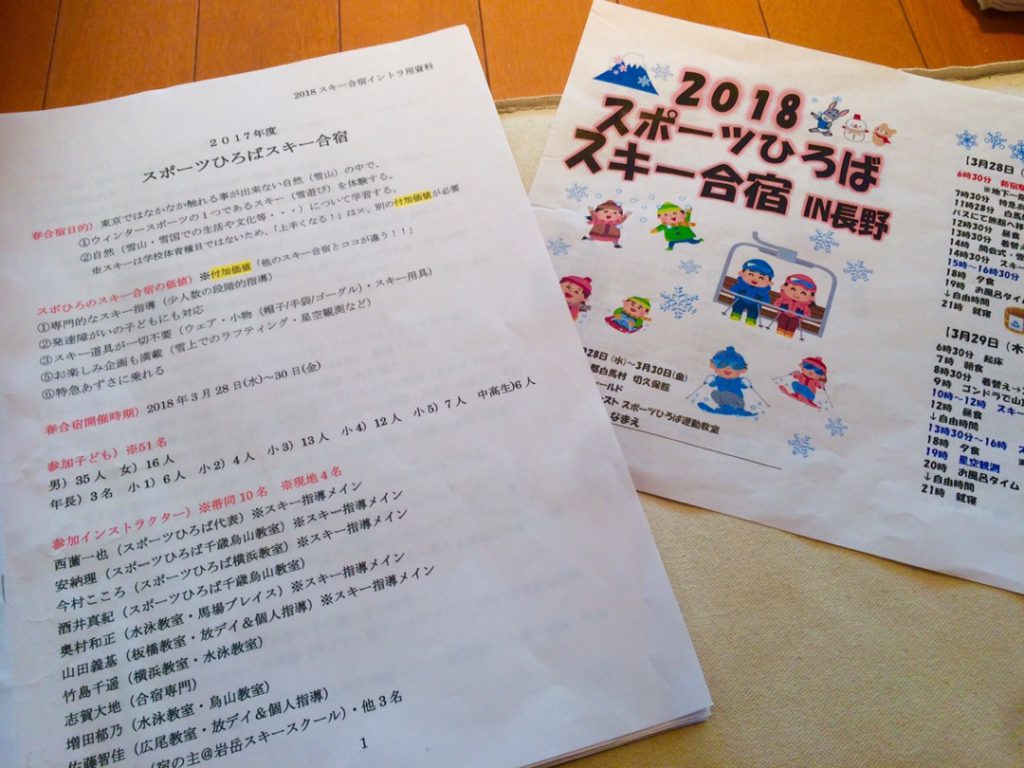 2018 スキー合宿イントラ用資料
2017年度
スポーツひろばスキー合宿
春合宿目的）東京ではなかなか触れる事が出来ない自然（雪山）の中で、
①ウィンタースポーツの1つであるスキー（雪遊び）を体験する。
②自然（雪山・雪国での生活や文化等・・・）について学習する。
※スキーは学校体育種目ではないため、「上手くなる！」は×。別の付加価値が必要
スポひろのスキー合宿の価値）※付加価値「他のスキー合宿とココが違う！！」
①専門的なスキー指導（少人数の段階的指導）
②発達障がいの子どもにも対応
③スキー道具が一切不要（ウェア・小物（帽子/手袋/ゴーグル）・スキー用具）
⑤お楽しみ企画も満載（雪上でのラフティング・星空観測など）
⑥特急あずさに乗れる
春合宿開催時期）2018年3月28日(水)～30日(金)
参加子ども）※51名
男）35人 女）16人
年長）3名 小1）6人 小2）4人 小3）13人 小4）12人 小5）7人 中高生)6人
参加インストラクター）※帯同10名 ※現地4名
西薗一也（スポーツひろば代表）※スキー指導メイン
安納理（スポーツひろば千歳烏山教室）※スキー指導メイン
今村こころ（スポーツひろば横浜教室）※スキー指導メイン
酒井真紀（スポーツひろば千歳烏山教室）
奥村和正（水泳教室・馬場プレイス）※スキー指導メイン
山田義基（板橋教室・放デイ＆個人指導）※スキー指導メイン
竹島千遥（横浜教室・水泳教室）
志賀大地（合宿専門）
増田郁乃（水泳教室・烏山教室）
佐藤智佳（広尾教室・放デイ＆個人指導）
（宿の主@岩岳スキースクール）・他3名
1
2018
スポーツひろば
スキー合宿 IN長野
28日（水）～3月30日(金)
郡白馬村 切久保館
ィールド
スト スポーツひろば運動教室
なまえ
【3月28日（
6時30分 新宿駅
※地下一階
7時30分 特急あ
11時28分 白馬
バスにて旅館へ移
12時30分 昼食
13時30分 着替え
14時 開会式・雪
14時30分 スキー
15時～16時30分
18時 夕食
19時 お風呂タイム
↓自由時間
21時 就寝
【3月29日（木
6時30分 起床
7時 朝食
8時30分 着替え→
9時 ゴンドラで山
10時～12時 スキ
12時 昼食
↓自由時間
13時30分～16時 ス
18時 夕食
19時 星空観測
20時 お風呂タイム
↓自由時間
21時 就寝